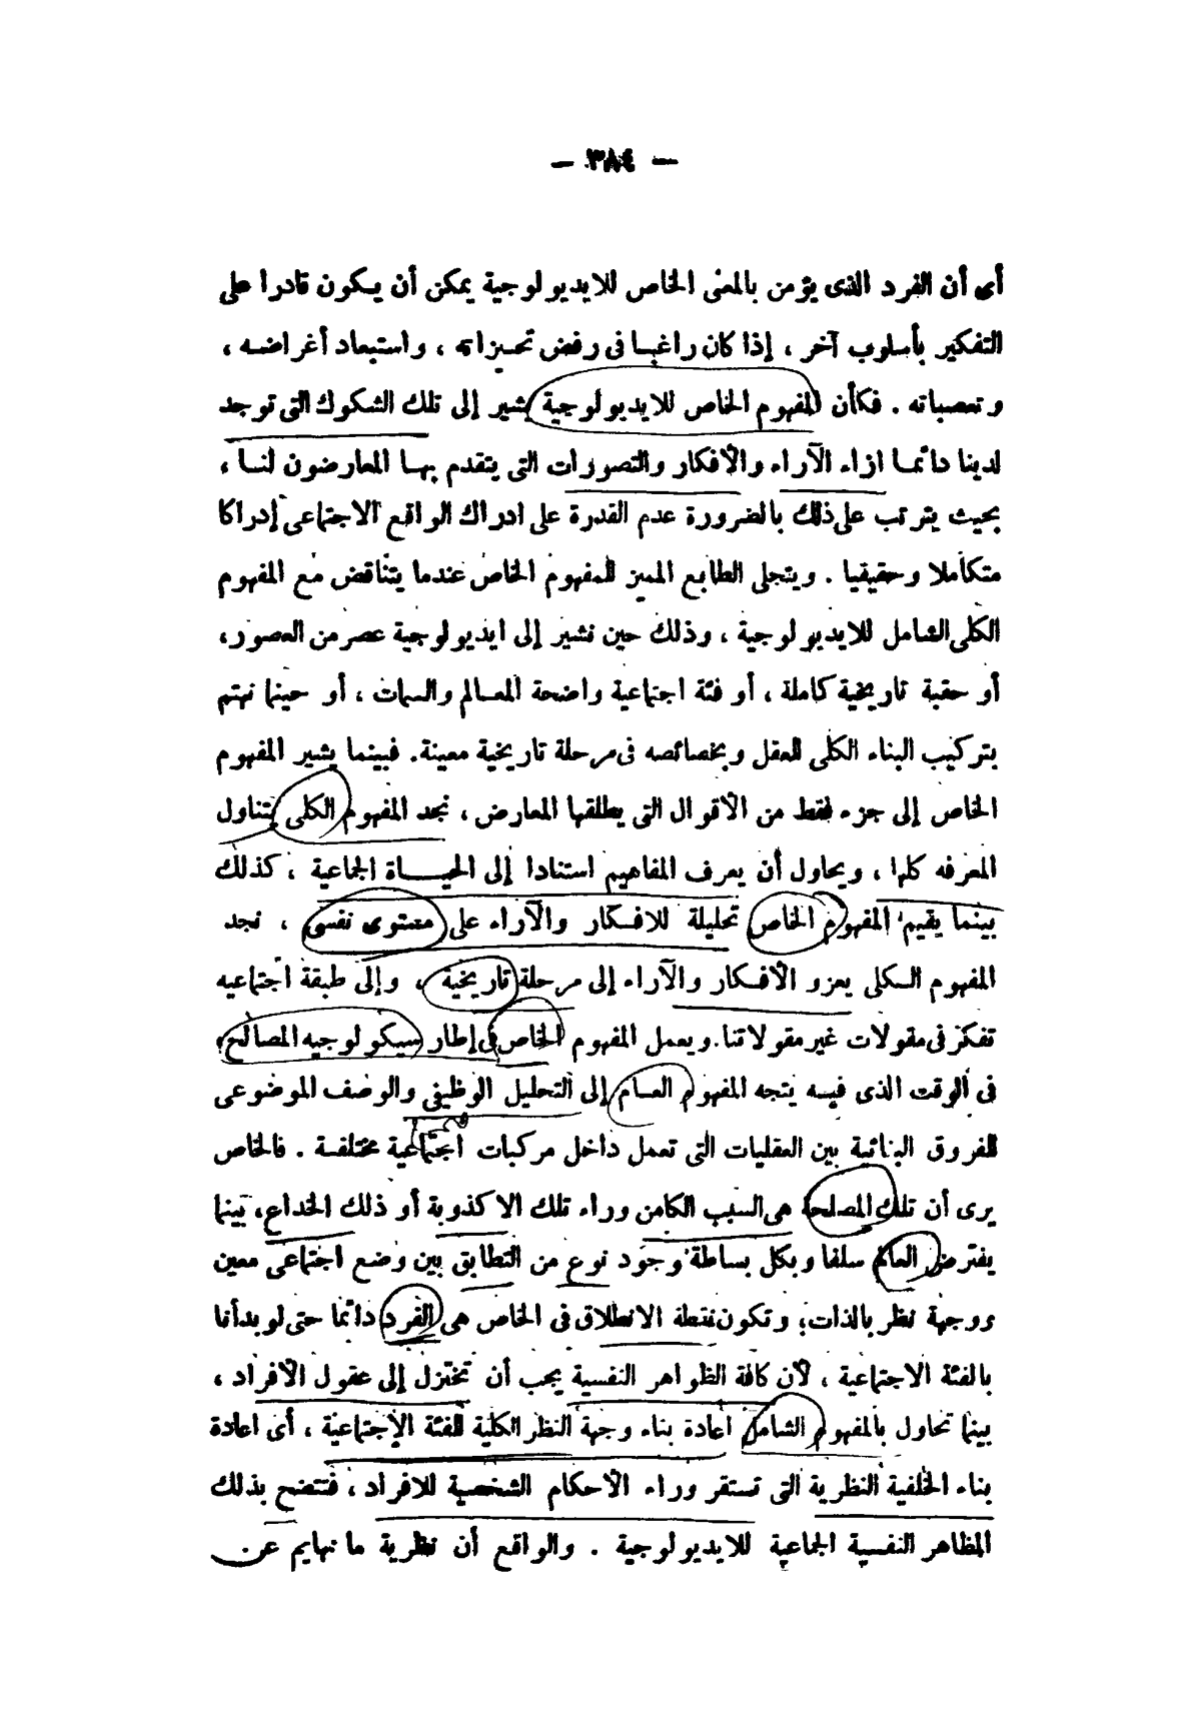 — ٣٨٤ —
أى أن الفرد الذى يؤمن بالمعنى الخاص للايديولوجية يمكن أن يكون قادرا على
التفكير بأسلوب آخر ، إذا كان راغبا فى رفض تحيزاته ، واستبعاد أغراضه ،
وتعصباته . فكأن المفهوم الخاص للايديولوجية يشير إلى تلك الشكوك التى توجد
لدينا دائما ازاء الآراء والأفكار والتصورات التى يتقدم بها المعارضون لنا ،
بحيث يترتب على ذلك بالضرورة عدم القدرة على ادراك الواقع الاجتماعى إدراكا
متكاملا وحقيقيا . ويتجلى الطابع المميز للمفهوم الخاص عندما يتناقض مع المفهوم
الكلى الشامل للايديولوجية ، وذلك حين نشير إلى ايديولوجية عصر من العصور،
أو حقبة تاريخية كاملة ، أو فئة اجتماعية واضحة المعالم والسمات ، أو حينما نهتم
بتركيب البناء الكلى للعقل وبخصائصه فى مرحلة تاريخية معينة. فبينما يشير المفهوم
الخاص إلى جزء فقط من الأقوال التى يطلقها المعارض ، نجد المفهوم الكلى يتناول
المعرفه كلها ، ويحاول أن يعرف المفاهيم استنادا إلى الحيـــاة الجماعية ، كذلك
بينما يقيم المفهوم الخاص تحليلة للافكار والآراء على مستوى نفسى ، نجد
المفهوم الكلى يعزو الأفكار والآراء إلى مرحلة تاريخية ، وإلى طبقة اجتماعيه
تفكر فى مقولات غير مقولاتنا. ويعمل المفهوم الخاص فى إطار سيكولوجيه المصالح ،
فى الوقت الذى فيه يتجه المفهوم العام إلى التحليل الوظيفى والوصف الموضوعى
للفروق البنائية بين العقليات التى تعمل داخل مركبات اجتماعية مختلفة . فالخاص
يرى أن تلك المصلحة هى السبب الكامن وراء تلك الاكذوبة أو ذلك الخداع، بينما
يفترض العام سلفا وبكل بساطة وجود نوع من التطابق بين وضع اجتماعى معين
ووجهة نظر بالذات؛ وتكون نقطة الانطلاق فى الخاص هى الفرد دائما حتى لو بدأنا
بالفئة الاجتماعية ، لأن كافة الظواهر النفسية يجب أن تختزل إلى عقول الأفراد ،
بينما تحاول بالمفهوم الشامل اعادة بناء وجهة النظر الكلية للفئة الإجتماعية ، أى اعادة
بناء الخلفية النظرية التى تستقر وراء الأحكام الشخصية للافراد ، فتتضح بذلك
المظاهر النفسية الجماعية للايديولوجية . والواقع أن نظرية مانهايم عن